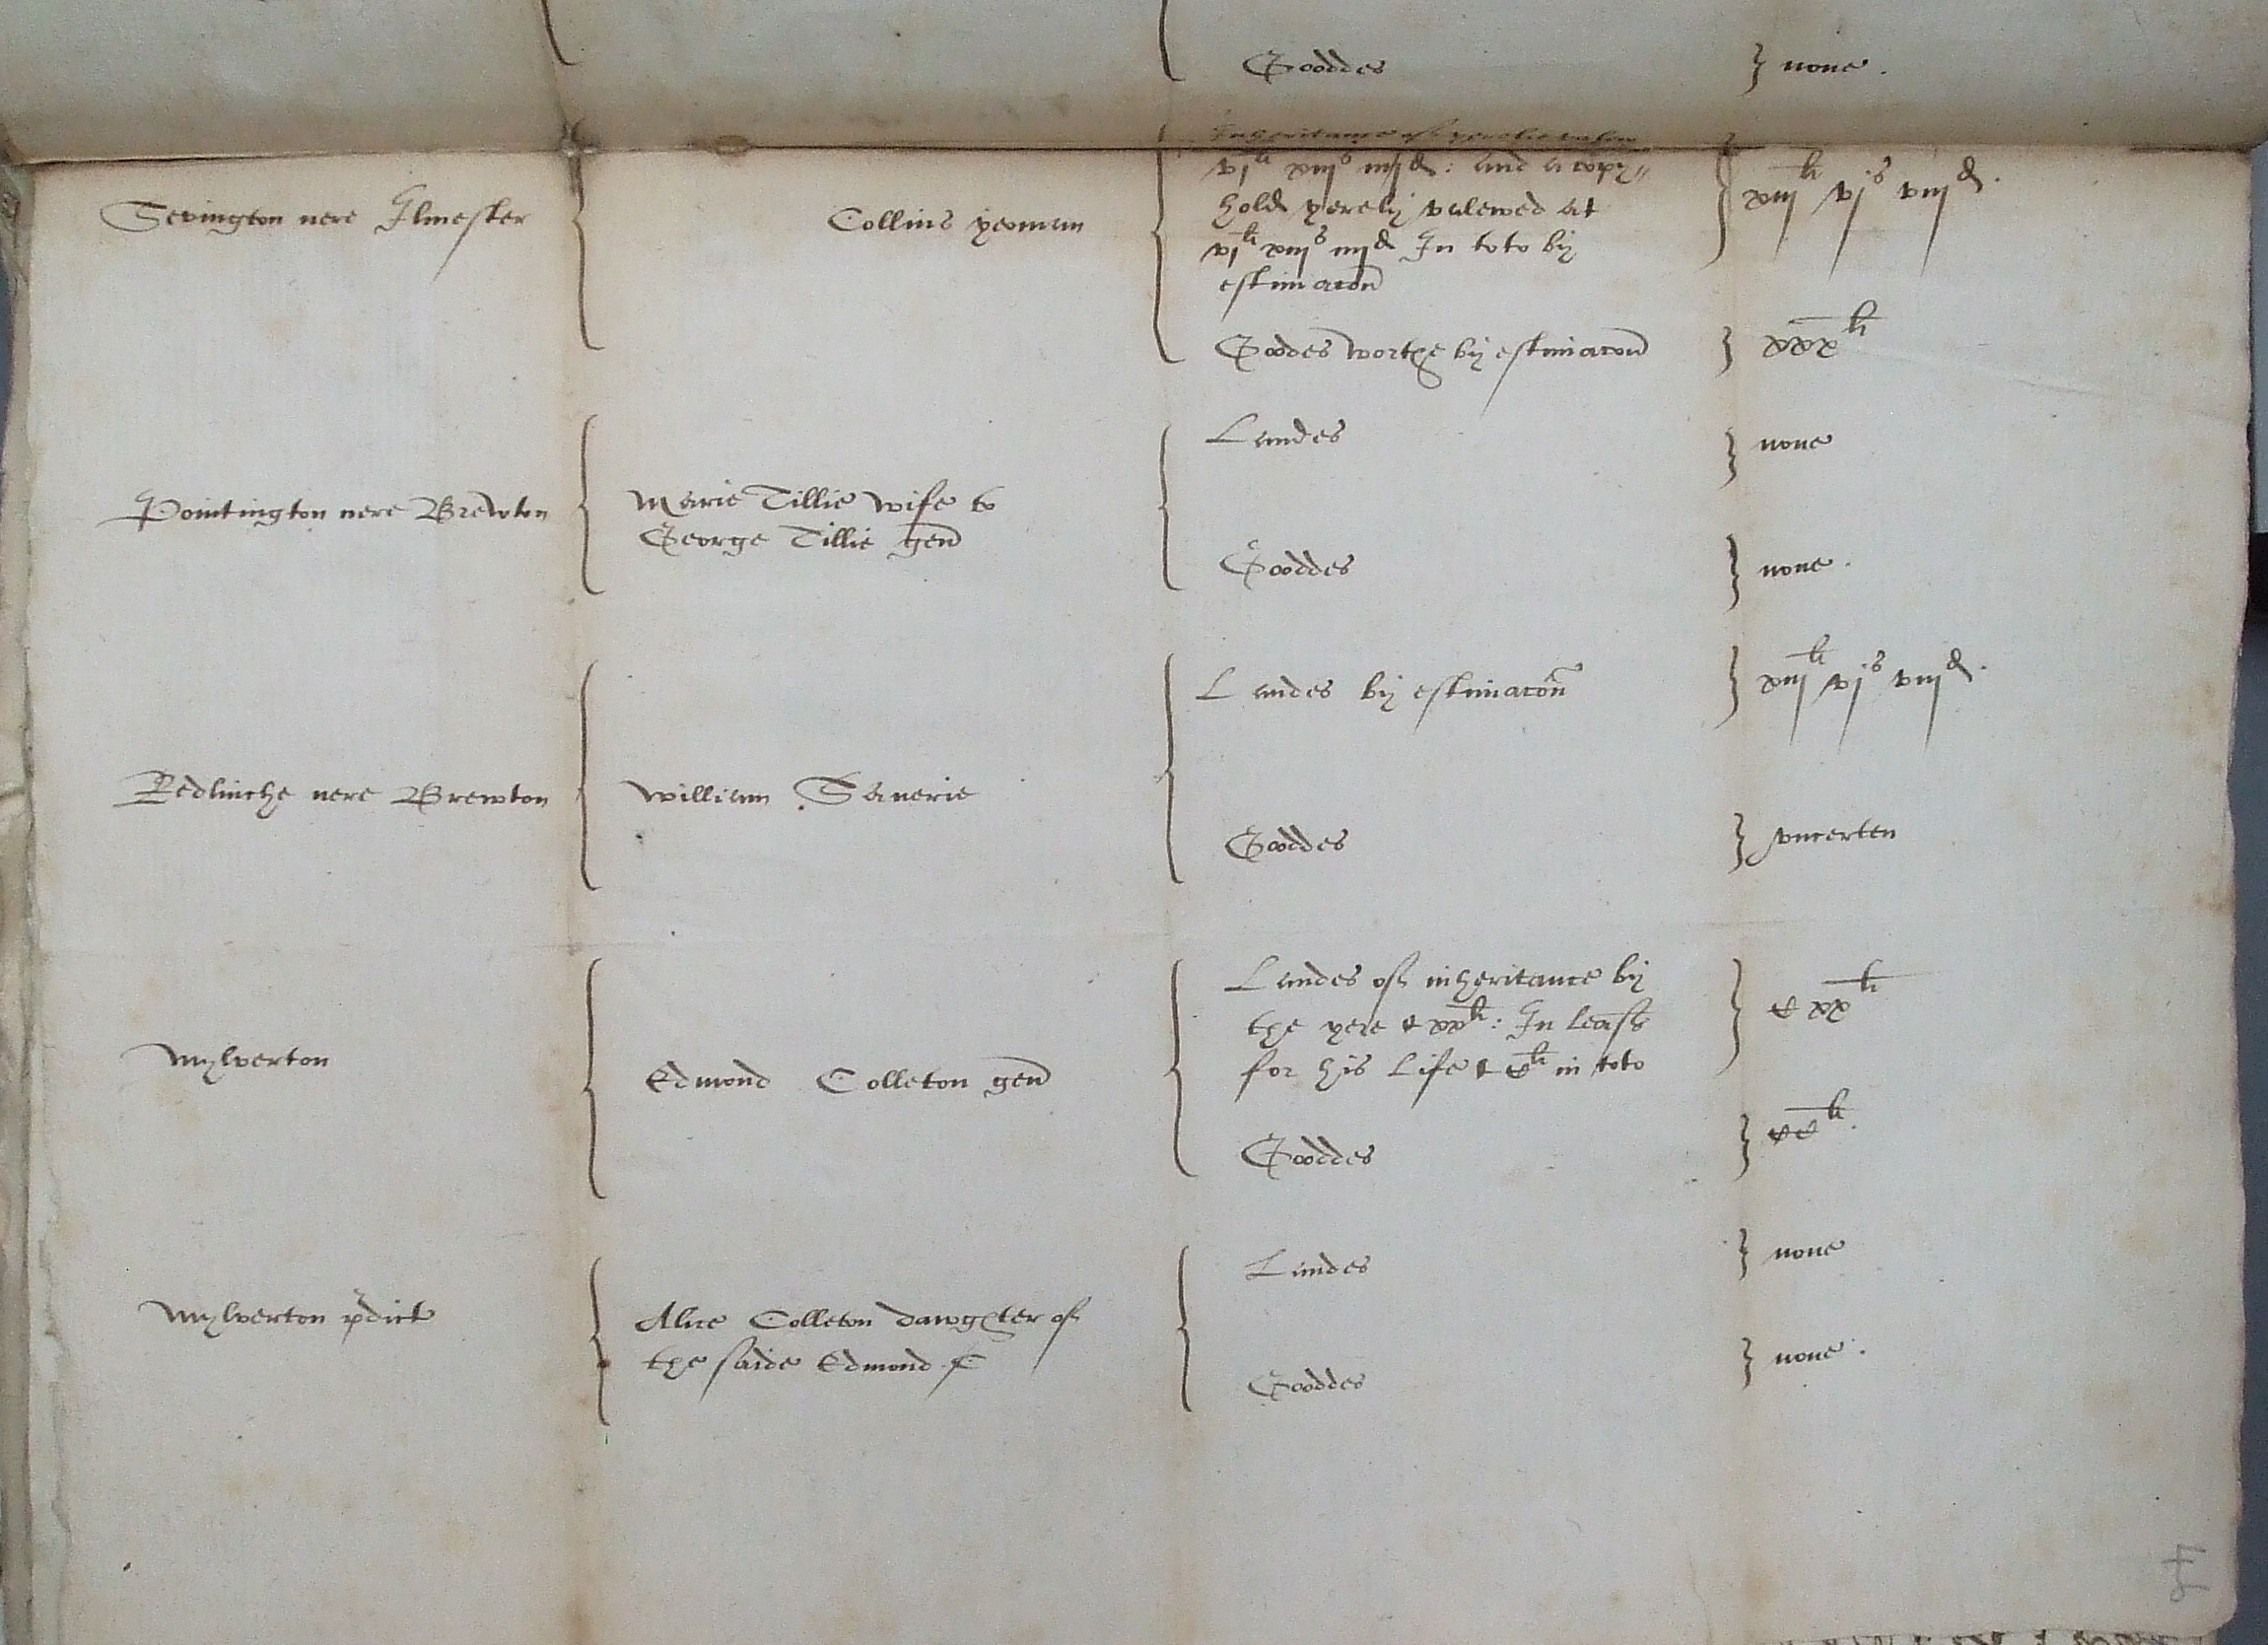 Gooddes } none .
Inheritance of yerelie valew
vj li xiij s iiij d : and a copy〃
Sevington nere Ilmester
Collins yeoman
hold yerely valewed at
vj li xiij s iiij d In toto by
estimacon
xiij li vj s viij d .
Goodes worthe by estimacon } xxx li
Pointington nere Brewton
Marie Tillie wife to
George Tillie gen
Landes } none
Gooddes } none .
Redlinche nere Brewton
William Sanerie
Landes by estimacon } xiij li vj s viij d .
Gooddes } vncerten
Mylverton
Edmond Colleton gen
Landes of inheritance by
the yere & xx li : In leass
for his life & c li in toto
c xx li
Gooddes } cc li .
Mylverton pdict
Alice Colleton dawghter of
the saide Edmond C
Landes } none
Gooddes } none .